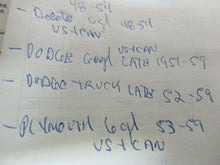 48-54
- DeSoto 6cyl 48-54
US+CAN
- DODGE 6cyl US+CAN LATE 1951-59
- DODGE TRUCK LATE 52-59
- PLYMOUTH 6cyl 53-59
US+CAN